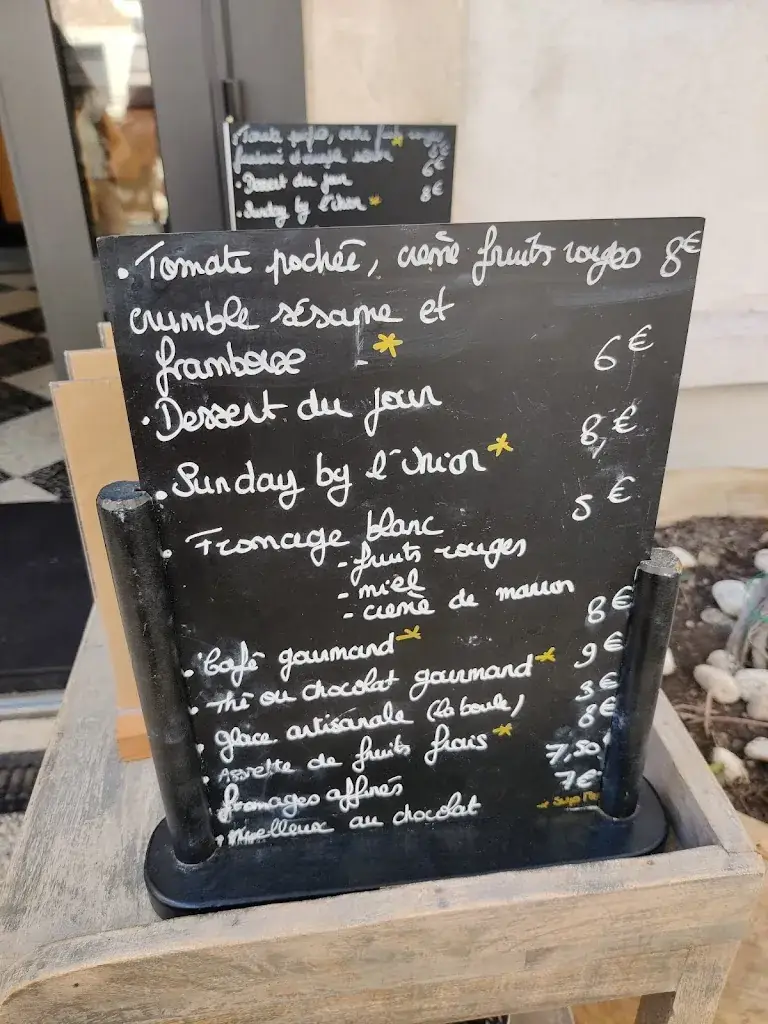 Tomate pochée, crème fruits rouges
crumble sésame et
framboise *
8€
6€
8€
· Tomate pochée, crème fruits rouges 8€
crumble sésame et
framboise *
· Dessert du jour 6€
· Sunday by l'Union * 8,€
· Fromage blanc 5€
- fruits rouges
- miel
- crème de marron
· Café gourmand * 8€
· Thé ou chocolat gourmand * 9€
· glace artisanale (la boule) 3€
· Assiette de fruits frais * 8€
· fromages affinés 7,50
· Moelleux au chocolat 7€